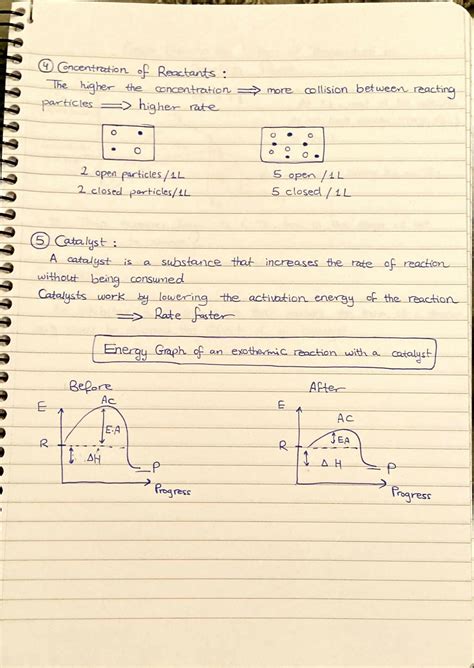 ④ Concentration of Reactants :
The higher the concentration ⟹ more collision between reacting
particles ⟹ higher rate
2 open particles/1L
5 open /1L
2 closed particles/1L
5 closed /1L
⑤ Catalyst :
A catalyst is a substance that increases the rate of reaction
without being consumed
Catalysts work by lowering the activation energy of the reaction
⟹ Rate faster
Energy Graph of an exothermic reaction with a catalyst
Before
After
E
AC
E.A
R
ΔH
P
Progress
E
AC
EA
R
ΔH
P
Progress